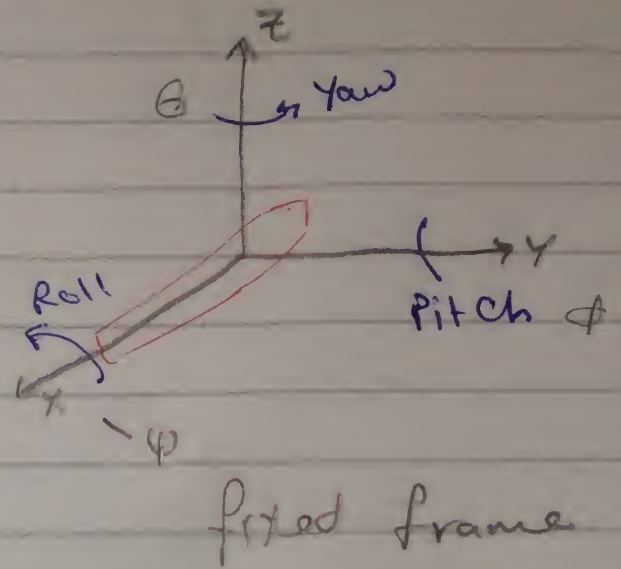 Z
θ Yaw
Y
Roll
Pitch ϕ
X
ψ
fixed frame